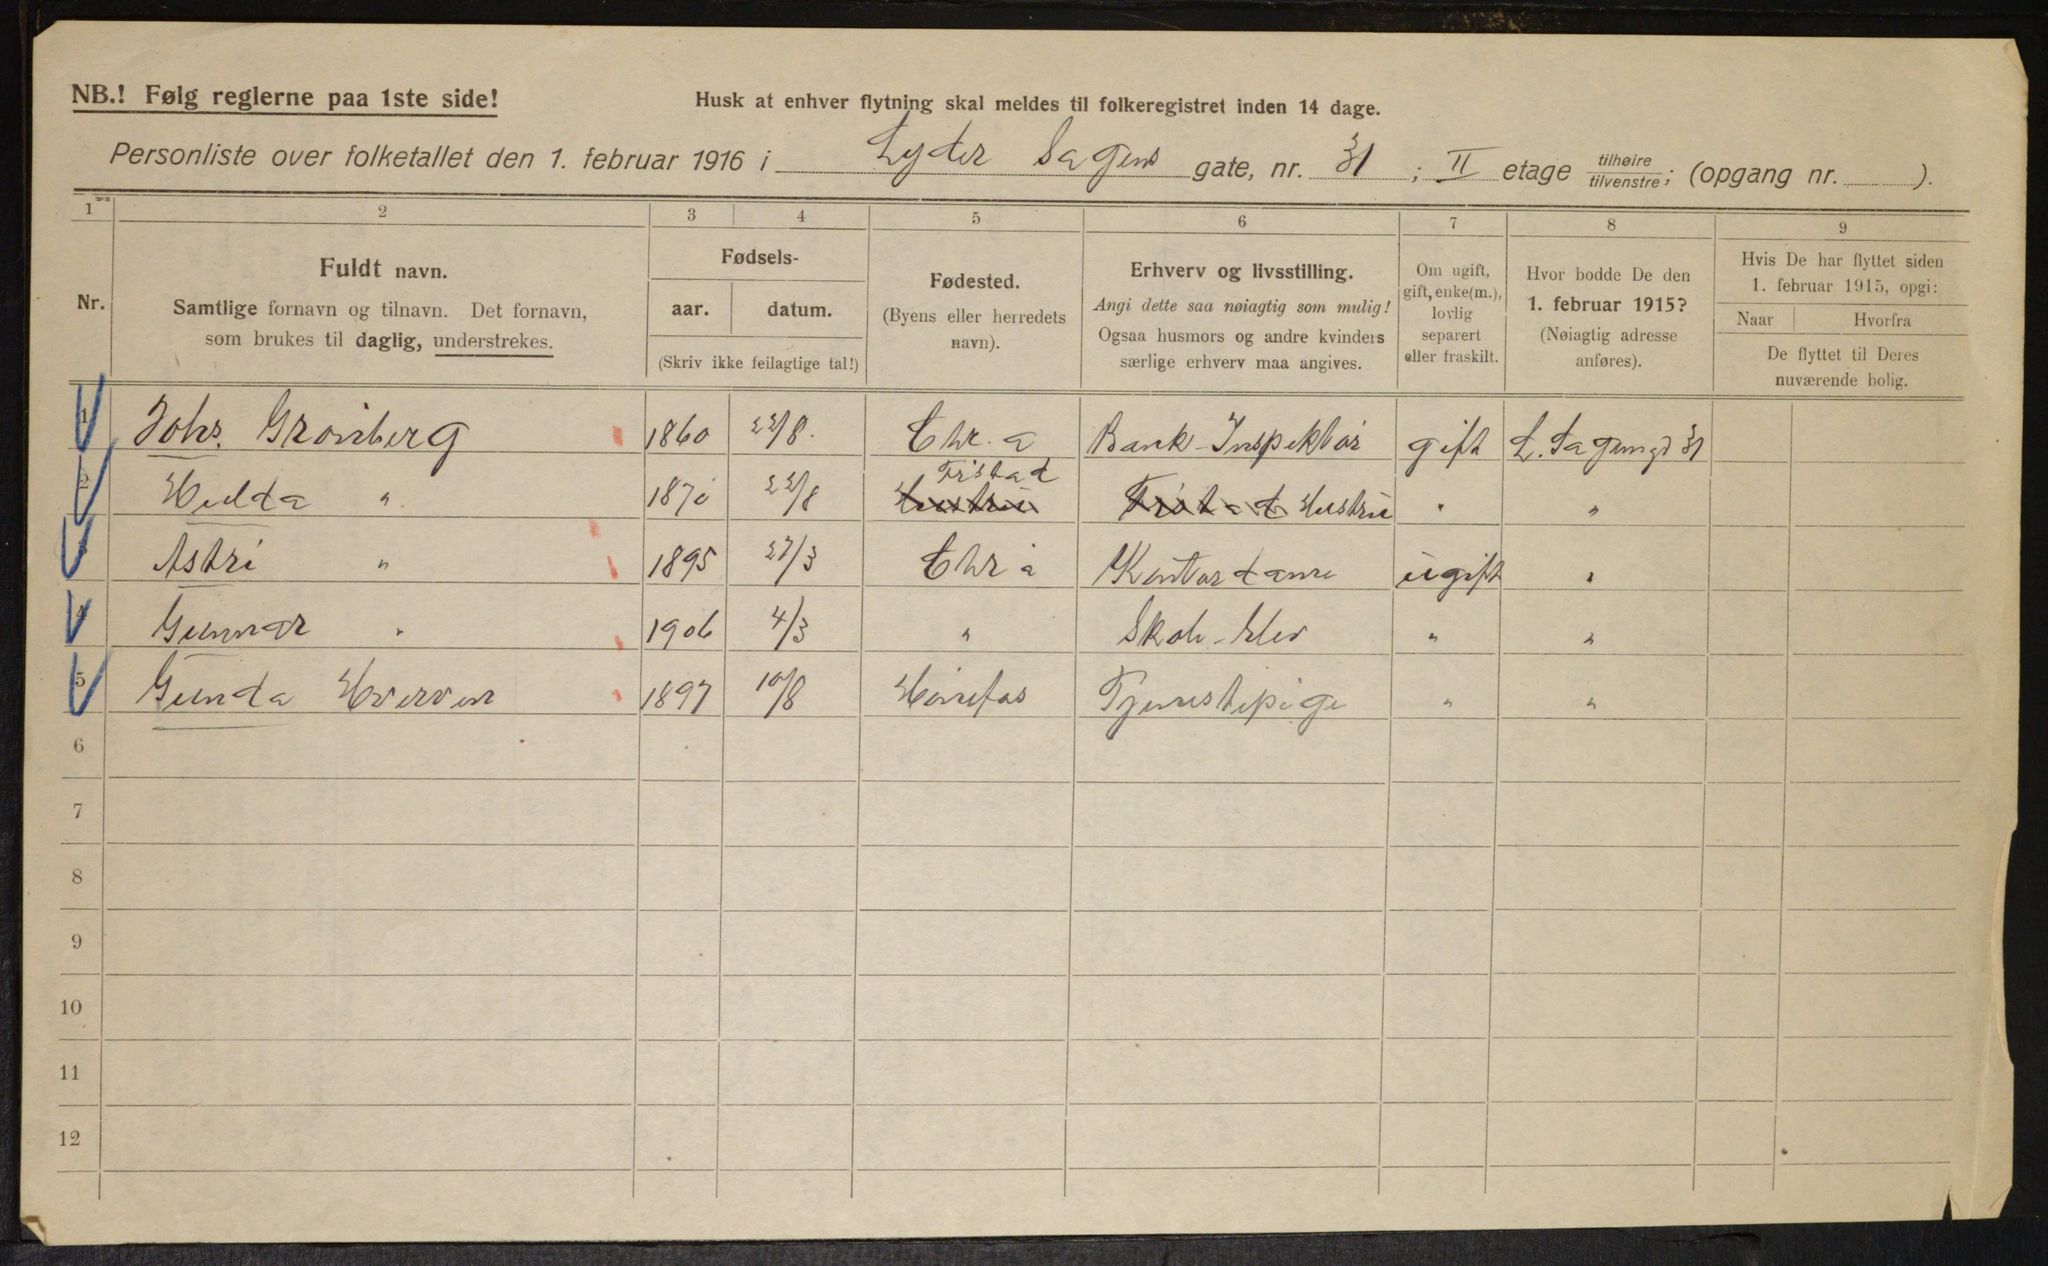 NB.! Følg reglerne paa 1ste side!
Husk at enhver flytning skal meldes til folkeregistret inden 14 dage.
Personliste over folketallet den 1. februar 1916 i Lyder Sagens gate, nr. 31; II etage tilhøire/tilvenstre; (opgang nr. ).
1 2 3 4 5 6 7 8 9
Nr.
Fuldt navn.
Samtlige fornavn og tilnavn. Det fornavn,
som brukes til daglig, understrekes.
Fødsels-
aar. datum.
(Skriv ikke feilagtige tal!)
Fødested.
(Byens eller herredets
navn).
Erhverv og livsstilling.
Angi dette saa nøiagtig som mulig!
Ogsaa husmors og andre kvinders
særlige erhverv maa angives.
Om ugift,
gift, enke(m.),
lovlig
separert
eller fraskilt.
Hvor bodde De den
1. februar 1915?
(Nøiagtig adresse
anføres).
Hvis De har flyttet siden
1. februar 1915, opgi:
Naar Hvorfra
De flyttet til Deres
nuværende bolig.
1 Johs. Grønberg 1860 22/8. Chr.a Bank-Inspektør gift L. Sagensgt 31
2 Hulda " 1870 22/8 Hustru Fristad Fristad Hustru " "
3 Astri " 1895 27/3 Chr a Kontordame ugift "
4 Gunnar " 1906 4/3 " Skole-Elev " "
5 Gunda Hverven 1897 10/8 Hønefos Tjenestepige " "
6
7
8
9
10
11
12